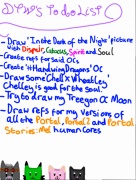 Draw's To do List
- Draw 'In the Dark of the Night' picture
with Despair, Catacus, Spirit and Soul
- Create refs for said OCs
- Create 'HandwingDragons' OC
- Draw some Chell x Wheatley
Chelley is good for the soul
- Try to draw my Treegon OC Moon
- Draw refs for my versions of
all the Portal, Portal 2 and Portal
Stories: Mel human Cores